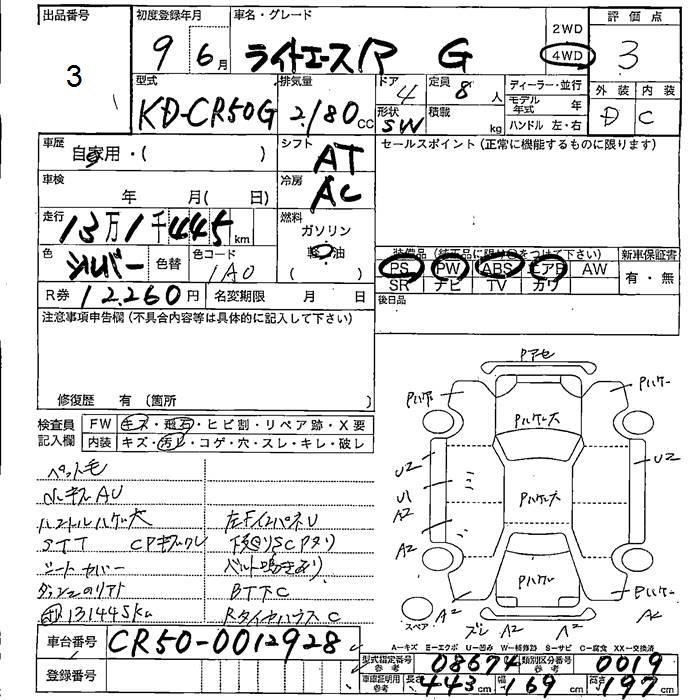 出品番号
3
初度登録年月
9 6月
車名・グレード
ライトエース G
2WD
4WD
評価点
3
型式
KD-CR50G
排気量
2,180 cc
ドア
4
形状
SW
定員
8 人
積載
kg
ディーラー・並行
モデル年式 年
ハンドル 左・右
外装 内装
D C
車歴
自家用・( )
シフト
AT
セールスポイント (正常に機能するものに限ります)
車検
年 月( 日)
冷房
AC
走行
13万1千445 km
燃料
ガソリン
軽油
( )
色
シルバー
色替
色コード
1A0
装備品 (純正品に限り○をつけて下さい)
新車保証書
PS PW ABS エアB AW
SR ナビ TV カワ
有・無
R券 12,260円
名変期限 月 日
後日品
注意事項申告欄 (不具合内容等は具体的に記入して下さい)
修復歴 有 (箇所 )
検査員記入欄
FW キズ・飛石・ヒビ割・リペア跡・X要
内装 キズ・汚レ・コゲ・穴・スレ・キレ・破レ
ペット毛
ハンドルハゲ大
STT
シートカバー
ベルト鳴きあり
BT下C
RタイヤハウスC
131445km
Pアセ
Pハゲ大
Pハゲ大
Pハゲ
Pハゲー
Pハゲー
U2
U1
A2
A2
U2
スペア
A2
ズレ
A2
A2
車台番号
CR50-0012928
登録番号
A-キズ E-エクボ U-凹み W-補修跡 S-サビ C-腐食 XX-交換済
型式指定番号 参考
08674
類別区分番号 参考
0019
車庫証明用 参考
長さ 443 cm
幅 169 cm
高さ 197 cm